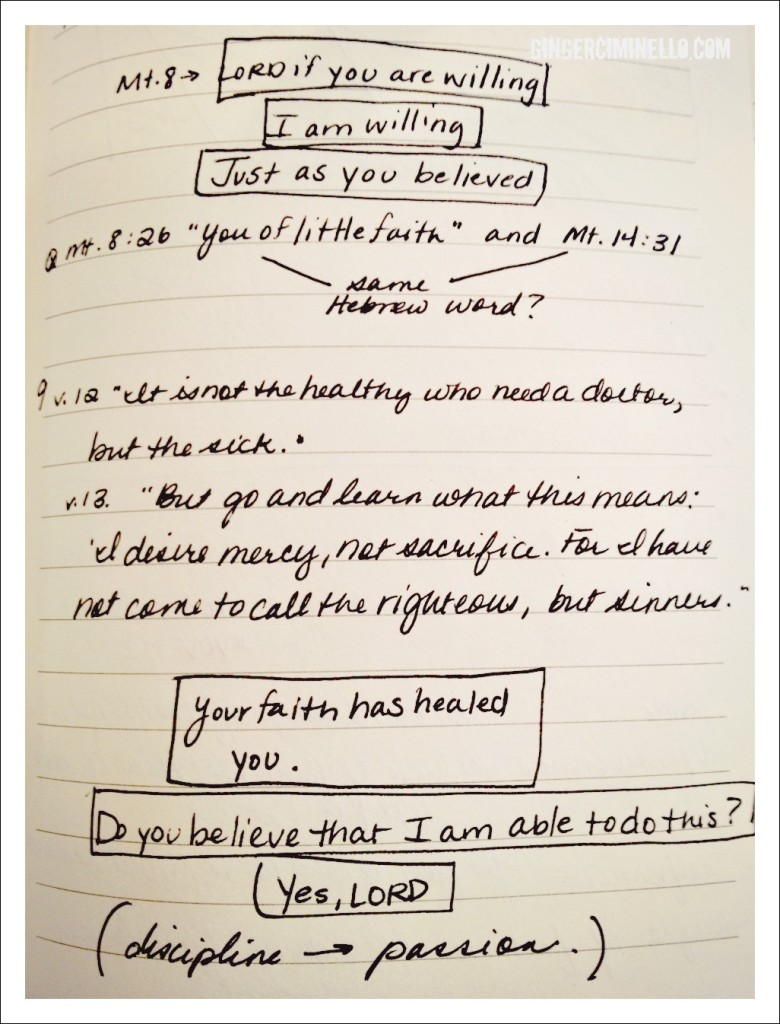 GINGERCIMINELLO.COM
Mt. 8 → LORD if you are willing
I am willing
Just as you believed
Q Mt. 8:26 "you of little faith" and Mt. 14:31
same
Hebrew word?
9 v.12 "It is not the healthy who need a doctor,
but the sick."
v.13. "But go and learn what this means:
'I desire mercy, not sacrifice. For I have
not come to call the righteous, but sinners."
Your faith has healed
you.
Do you believe that I am able to do this?
Yes, LORD
(discipline → passion.)